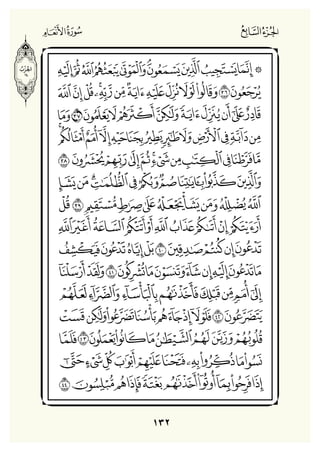 سُورَةُ الأَنْعَامِ الجُزْءُ السَّابِعُ
۞ إِنَّمَا يَسْتَجِيبُ الَّذِينَ يَسْمَعُونَ وَالْمَوْتَىٰ يَبْعَثُهُمُ اللَّهُ ثُمَّ إِلَيْهِ
يُرْجَعُونَ ٣٦ وَقَالُوا لَوْلَا نُزِّلَ عَلَيْهِ آيَةٌ مِّن رَّبِّهِ قُلْ إِنَّ اللَّهَ
قَادِرٌ عَلَىٰ أَن يُنَزِّلَ آيَةً وَلَٰكِنَّ أَكْثَرَهُمْ لَا يَعْلَمُونَ ٣٧ وَمَا
مِن دَابَّةٍ فِي الْأَرْضِ وَلَا طَائِرٍ يَطِيرُ بِجَنَاحَيْهِ إِلَّا أُمَمٌ أَمْثَالُكُم
مَّا فَرَّطْنَا فِي الْكِتَابِ مِن شَيْءٍ ثُمَّ إِلَىٰ رَبِّهِمْ يُحْشَرُونَ ٣٨
وَالَّذِينَ كَذَّبُوا بِآيَاتِنَا صُمٌّ وَبُكْمٌ فِي الظُّلُمَاتِ مَن يَشَإِ
اللَّهُ يُضْلِلْهُ وَمَن يَشَأْ يَجْعَلْهُ عَلَىٰ صِرَاطٍ مُّسْتَقِيمٍ ٣٩ قُلْ
أَرَأَيْتَكُمْ إِنْ أَتَاكُمْ عَذَابُ اللَّهِ أَوْ أَتَتْكُمُ السَّاعَةُ أَغَيْرَ اللَّهِ
تَدْعُونَ إِن كُنتُمْ صَادِقِينَ ٤٠ بَلْ إِيَّاهُ تَدْعُونَ فَيَكْشِفُ
مَا تَدْعُونَ إِلَيْهِ إِن شَاءَ وَتَنسَوْنَ مَا تُشْرِكُونَ ٤١ وَلَقَدْ أَرْسَلْنَا
إِلَىٰ أُمَمٍ مِّن قَبْلِكَ فَأَخَذْنَاهُم بِالْبَأْسَاءِ وَالضَّرَّاءِ لَعَلَّهُمْ
يَتَضَرَّعُونَ ٤٢ فَلَوْلَا إِذْ جَاءَهُم بَأْسُنَا تَضَرَّعُوا وَلَٰكِن قَسَتْ
قُلُوبُهُمْ وَزَيَّنَ لَهُمُ الشَّيْطَانُ مَا كَانُوا يَعْمَلُونَ ٤٣ فَلَمَّا
نَسُوا مَا ذُكِّرُوا بِهِ فَتَحْنَا عَلَيْهِمْ أَبْوَابَ كُلِّ شَيْءٍ حَتَّىٰ
إِذَا فَرِحُوا بِمَا أُوتُوا أَخَذْنَاهُم بَغْتَةً فَإِذَا هُم مُّبْلِسُونَ ٤٤
١٣٢